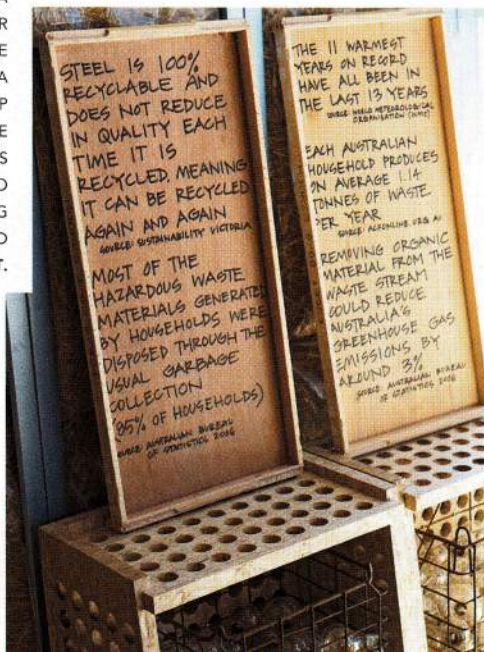 STEEL IS 100%
RECYCLABLE AND
DOES NOT REDUCE
IN QUALITY EACH
TIME IT IS
RECYCLED, MEANING
IT CAN BE RECYCLED
AGAIN AND AGAIN
SOURCE: SUSTAINABILITY VICTORIA
MOST OF THE
HAZARDOUS WASTE
MATERIALS GENERATED
BY HOUSEHOLDS WERE
DISPOSED THROUGH THE
USUAL GARBAGE
COLLECTION
(95% OF HOUSEHOLDS)
SOURCE: AUSTRALIAN BUREAU
OF STATISTICS 2006
THE 11 WARMEST
YEARS ON RECORD
HAVE ALL BEEN IN
THE LAST 13 YEARS
SOURCE: WORLD METEOROLOGICAL
ORGANISATION (WMO)
EACH AUSTRALIAN
HOUSEHOLD PRODUCES
ON AVERAGE 1.14
TONNES OF WASTE
PER YEAR
SOURCE: ACFONLINE.ORG.AU
REMOVING ORGANIC
MATERIAL FROM THE
WASTE STREAM
COULD REDUCE
AUSTRALIA'S
GREENHOUSE GAS
EMISSIONS BY
AROUND 3%
SOURCE: AUSTRALIAN BUREAU
OF STATISTICS 2006